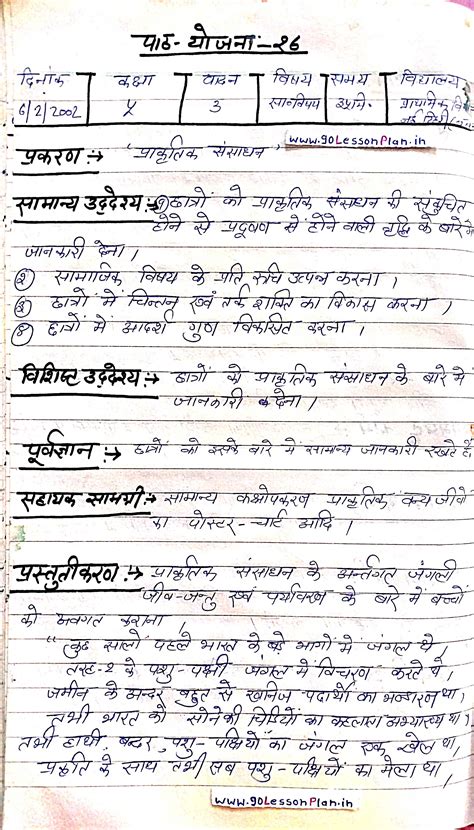 पाठ-योजना-26
दिनांक कक्षा विषय समय विद्यालय
6/2/2002 3
www.goLessonPlan.in
प्रकरण :→ "प्राकृतिक संसाधन"
सामान्य उद्देश्य :→ ① छात्रों को प्राकृतिक संसाधन की संकुचित
होने से प्रदूषण से होने वाली वृद्धि के बारे में
जानकारी देना।
② सामाजिक विषय के प्रति रुचि उत्पन्न करना।
③ छात्रों में चिन्तन एवं तर्क शक्ति का विकास करना।
④ छात्रों में आदर्श गुण विकसित करना।
विशिष्ट उद्देश्य :→ छात्रों को प्राकृतिक संसाधन के बारे में
जानकारी देना।
पूर्वज्ञान :→ छात्रों को इसके बारे में सामान्य जानकारी रखते हैं
सहायक सामग्री :→ सामान्य कक्षोपकरण प्राकृतिक वन्य जीवों
का पोस्टर-चार्ट आदि।
प्रस्तुतीकरण :→ प्राकृतिक संसाधन के अर्न्तगत जंगली
जीव-जन्तु एवं पर्यावरण के बारे में बच्चों
को अवगत कराना।
"कुछ सालों पहले भारत के बड़े भागों में जंगल थे,
तरह-2 के पशु-पक्षी जंगल में विचरण करते थे।
जमीन के अन्दर बहुत से खनिज पदार्थों का भण्डारण था।
तभी भारत को सोने की चिड़ियों का
तभी हाथी, बन्दर, पशु-पक्षियों का जंगल एक खेल था,
प्रकृति के साथ तभी सब पशु-पक्षियों का मेला था।
www.goLessonPlan.in